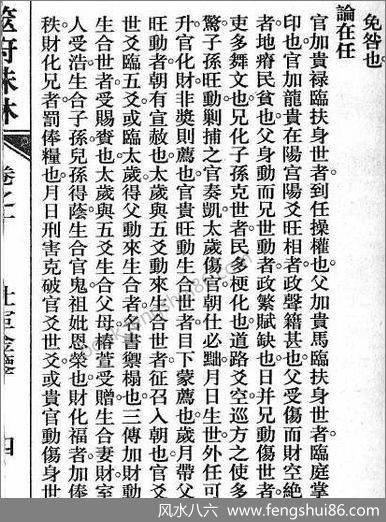 免咎也。
論在任
官加貴禄臨扶身世者。到任操權也。父加貴馬臨扶身世者。臨庭掌
印也。官加龍貴在陽宫陽爻旺相者。政聲籍甚也。父受傷而財空絶
者。地瘠民貧也。父身動而兄世動者。政繁賦缺也。日并兄動傷世者。
吏多舞文也。兄化子孫克世者。民多梗化也。道路爻空。巡方之使多
驚。子孫旺動。剿捕之官奏凱。太歲傷官。朝仕必黜。月日生世。外任可
升。官化財。非奬則薦也。官貴旺動生合世者。目下蒙薦也。歲月帶父
旺動者。朝有宣赦也。太歲與五爻動來生合世者。征召入朝也。官爻
世爻臨五爻。或臨太歲。得父動來生合者。名書禦榻也。三傳加財動
生合世者。受賜賚也。太歲與五爻生合父母。椿萱受贈。生合妻財。室
人受浩。生合子孫。兒孫得蔭。生合官鬼。祖妣恩榮也。財化福者。加俸
秩。財化兄者。罰俸糧也。月日刑害克破官爻世爻。或貴官動傷身世
筮府珠林
四
风水八六 - www.fengshui86.com